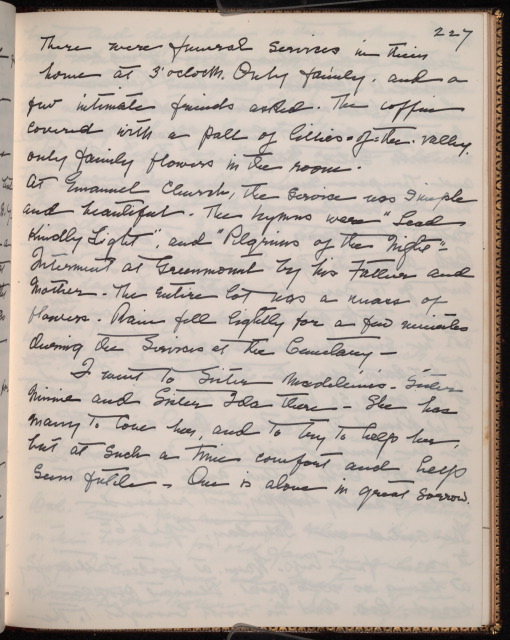 227
There were funeral services in their
home at 3 o'clock. Only family. and a
few intimate friends asked. The coffin
covered with a pall of lillies-of-the-valley.
only family flowers in the room.
At Emanuel Church, the service was simple
and beautiful. The hymns were "Lead
Kindly Light", and "Pilgrims of the Night"-
Interment at Greenmount by his Father and
Mother. The entire lot was a mass of
flowers. Rain fell lightly for a few minutes
during the Services at the Cemetary -
I went to Sister Madeleine's. Sister
Minnie and Sister Ida there - She has
many to love her, and to try to help her,
but at such a time comfort and help
seem futile - One is alone in great sorrow.